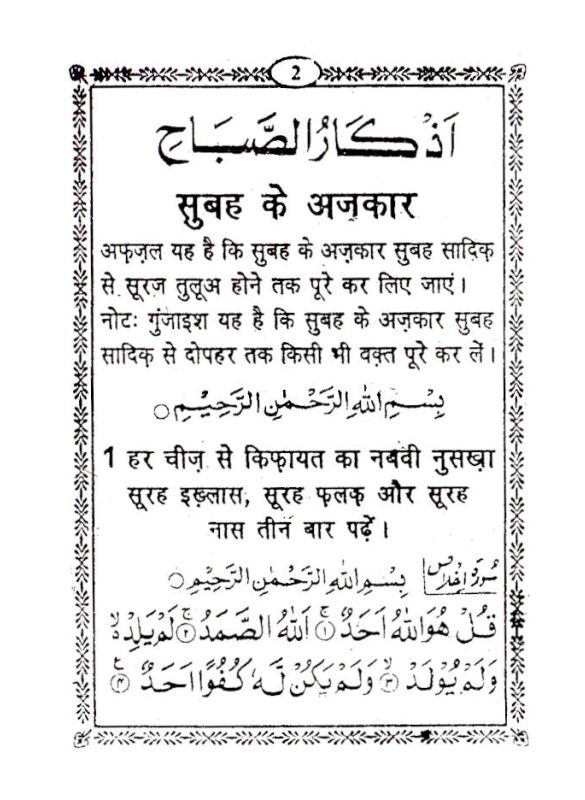 2
اَذْكَارُ الصَّبَاحِ
सुबह के अज़कार
अफ़ज़ल यह है कि सुबह के अज़कार सुबह सादिक़
से सूरज तुलूअ होने तक पूरे कर लिए जाएं।
नोटः गुंजाइश यह है कि सुबह के अज़कार सुबह
सादिक़ से दोपहर तक किसी भी वक़्त पूरे कर लें।
بِسْمِ اللهِ الرَّحْمٰنِ الرَّحِيْمِ ○
1 हर चीज़ से किफ़ायत का नबवी नुसख़ा
सूरह इख़्लास, सूरह फ़लक़ और सूरह
नास तीन बार पढ़ें।
سُورۃ اِخلاص بِسْمِ اللهِ الرَّحْمٰنِ الرَّحِيْمِ ○
قُلْ هُوَ اللهُ اَحَدٌ ۚ ① اَللهُ الصَّمَدُ ۚ ② لَمْ يَلِدْ ۙ
وَلَمْ يُوْلَدْ ۙ ③ وَلَمْ يَكُنْ لَّهٗ كُفُوًا اَحَدٌ ع ④